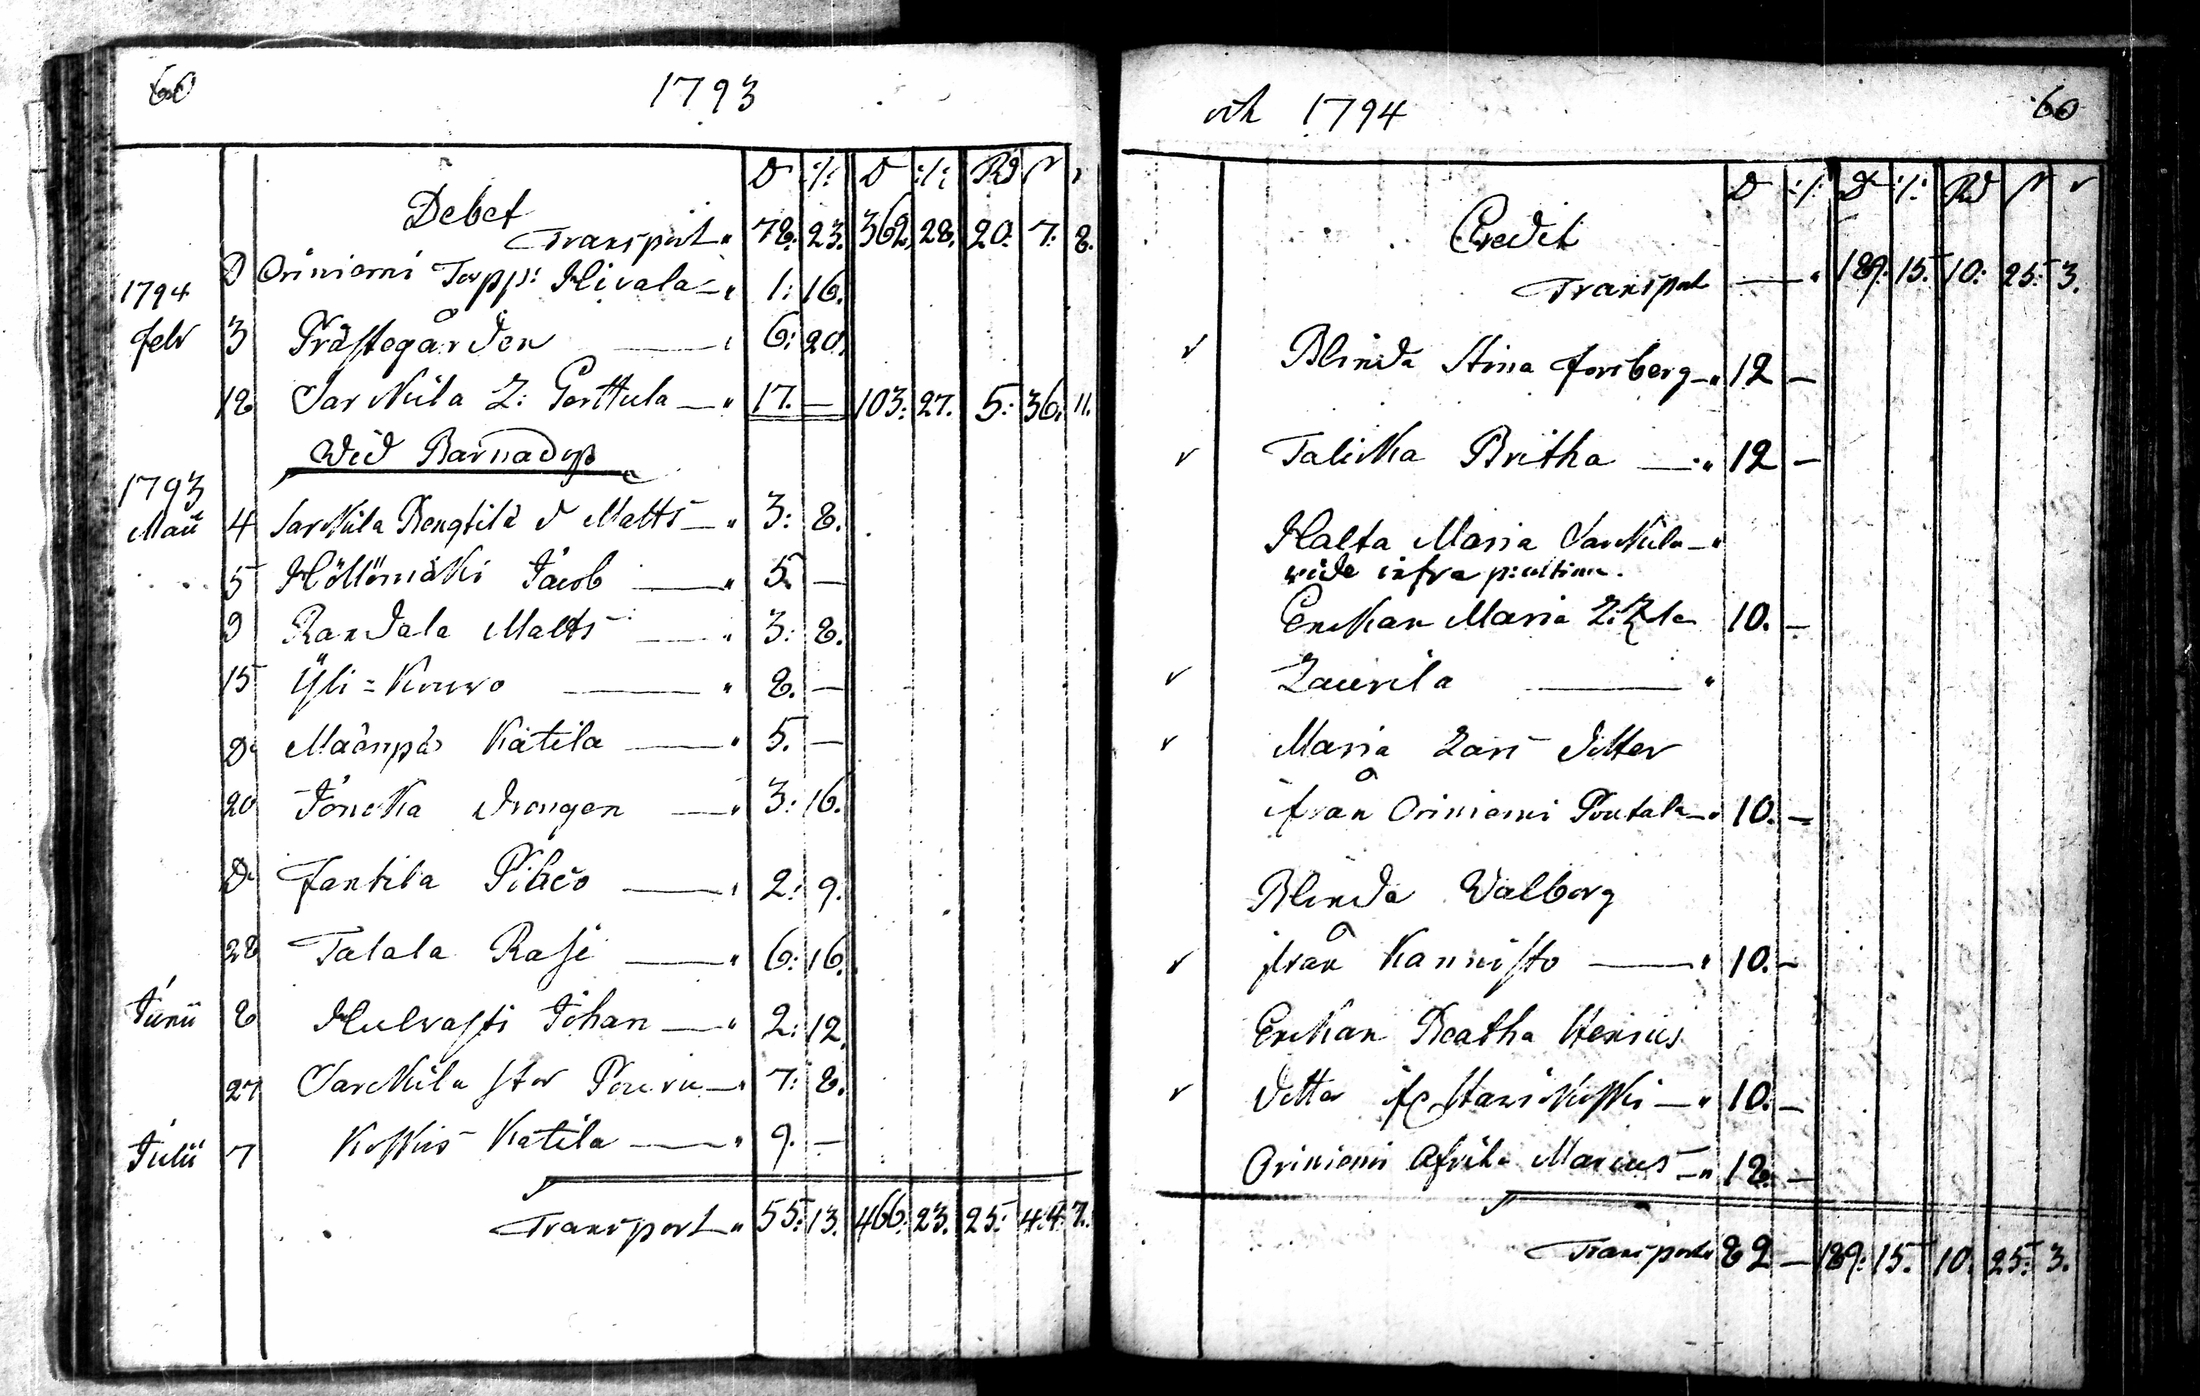 60 1793
D :/: D :/: Rd s r
Debet
Transport " 78: 23. 362. 28. 20. 7. 8.
1794 D Oriniemi Torpp: Hivala " 1: 16.
febr 3 Prästegården 6: 20.
18 Sarkiila L: Perttula " 17. — 103: 27. 5: 36. 11.
Wid Barnadop
1793
Maii 4 Sarkiila Bengtilä d Matts " 3: 8.
5 Höllömäki Jacob " 5. —
9 Randala Matts " 3: 8.
15 Yli=Kouvo " 8. —
D: Mäenpää Katila " 5. —
20 Jonckka drängen " 3: 16.
D: Fantila Pihco 2: 9.
28 Talala Rasi " 6: 16.
Junii 8 Hulvasti Johan " 2: 12.
27 Sarkiila stor Pouru " 7: 8.
Julii 7 Koskis Katila " 9. —
Transport " 55: 13. 466: 23. 25: 44. 7.
och 1794 60
D :/: D :/: Rd s r
Credit
Transport " 189: 15. 10: 25: 3.
Blinda Stina Forsberg " 12 —
Talicka Britha " 12 —
Halta Maria Sarkiila "
vide infra p: ultima.
Enkan Maria 10. —
Laurila "
Maria Lars dotter
ifrån Oriniemi Poutala " 10. —
Blinda Walborg
ifrån Kannisto " 10. —
Enkan Beatha Henrics
dotter if. Harikoski " 10. —
Oriniemi Afrila Marcus " 18. —
Transport " 82 — 189: 15. 10. 25: 3.